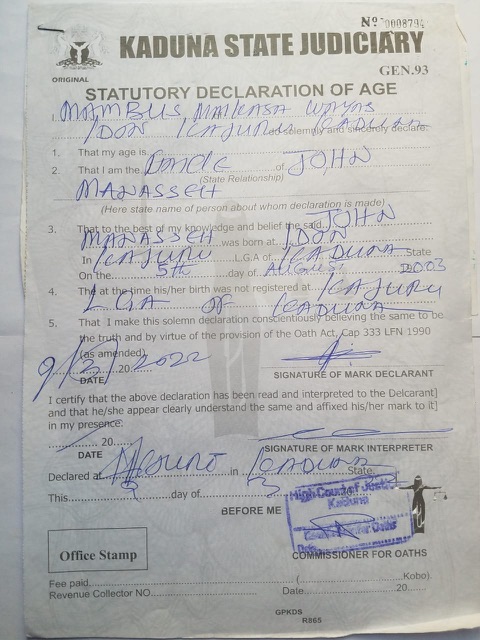 Nº 0008794
KADUNA STATE JUDICIARY
ORIGINAL
GEN.93
STATUTORY DECLARATION OF AGE
I, MAMBUS MAKASA WAYAS
IDON KAJURU KADUNA do solemnly and sincerely declare:
1. That my age is
2. That I am the Uncle of JOHN
(State Relationship)
MANASSEH
(Here state name of person about whom declaration is made)
3. That to the best of my knowledge and belief the said JOHN
MANASSEH was born at IDON
In KAJURU L.G.A of KADUNA State
On the 5th day of AUGUST 2003
4. The at the time his/her birth was not registered at KAJURU
LGA OF KADUNA
5. That I make this solemn declaration conscientiously believing the same to be
the truth and by virtue of the provision of the Oath Act, Cap 333 LFN 1990
(as amended)
9/3/2022 20
DATE
SIGNATURE OF MARK DECLARANT
I certify that the above declaration has been read and interpreted to the Delcarant]
and that he/she appear clearly understand the same and affixed his/her mark to it]
in my presence.
20
DATE
SIGNATURE OF MARK INTERPRETER
Declared at in KADUNA State,
This 9 day of 3
BEFORE ME
High Court of Justice
Kaduna
COMMISSIONER FOR OATHS
Office Stamp
Fee paid (Kobo).
Revenue Collector NO Date 20
GPKDS
R865